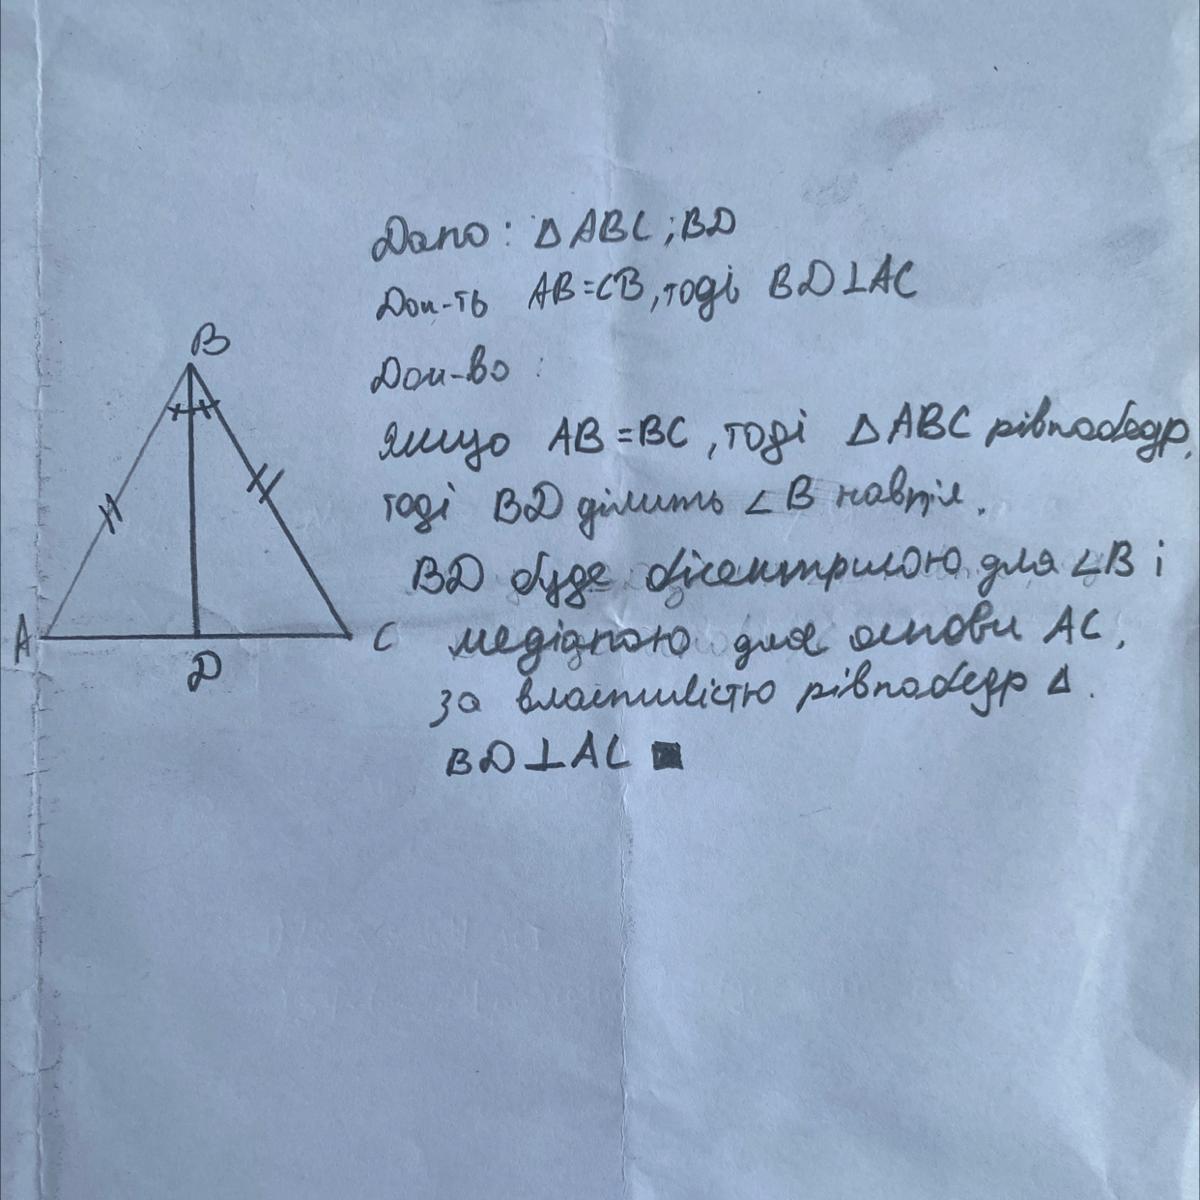 Дано: Δ ABC ; BD
Док-ть AB=CB, тоді BD⊥AC
Док-во :
Якщо AB=BC, тоді Δ ABC рівнобедр,
тоді BD ділить ∠B навпіл.
BD буде бісектрисою для ∠B і
медіаною для основи AC,
за властивістю рівнобедр Δ.
BD⊥AC ■
B
A
D
C